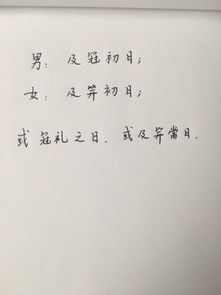 男：及冠初日；
女：及笄初日；
或冠礼之日，或及笄當日．